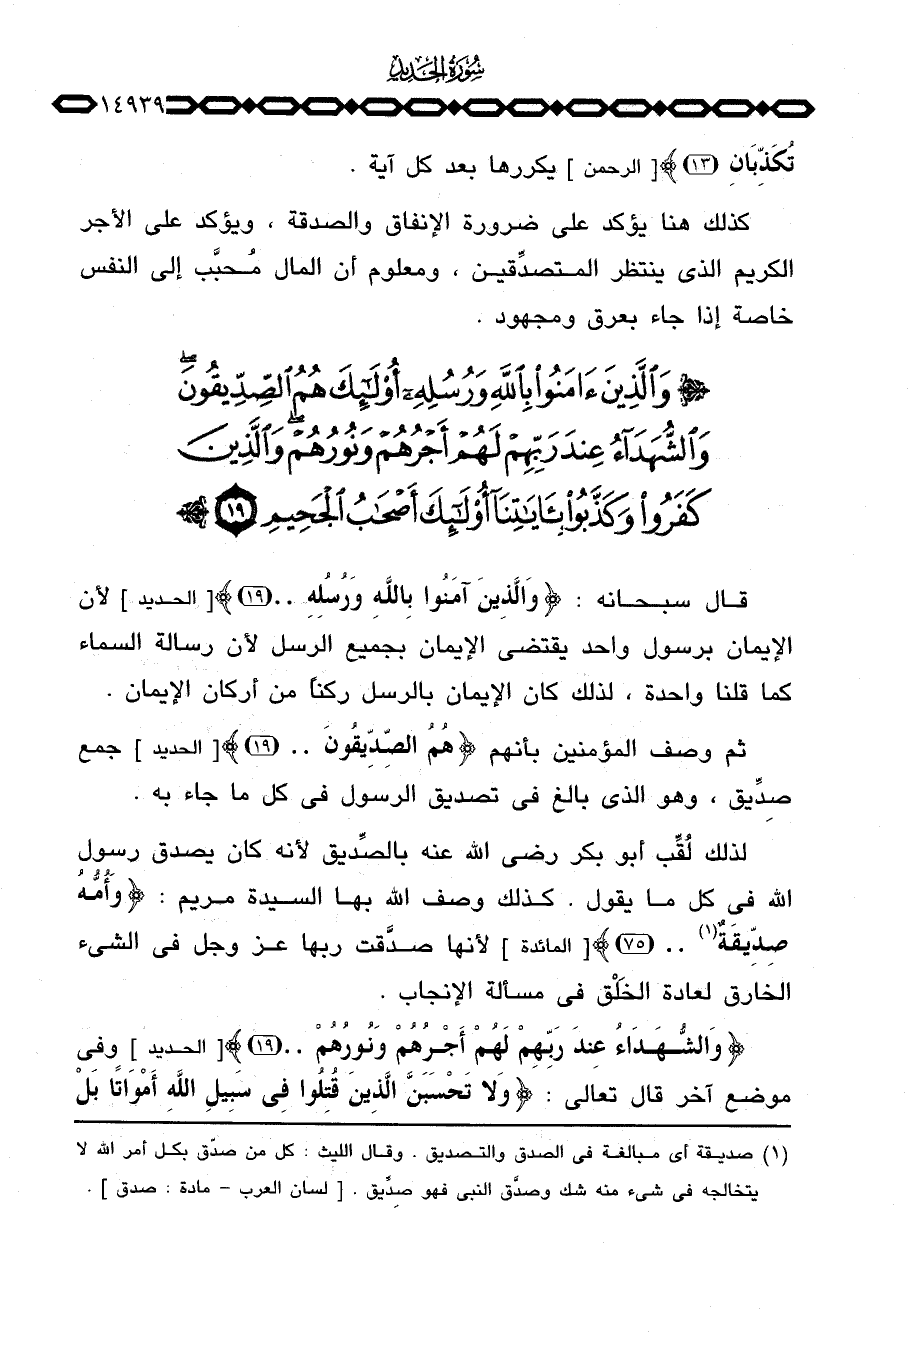 سورة الحديد
١٤٩٣٩
تُكَذِّبَانِ (١٣) ﴾ [ الرحمن ] يكررها بعد كل آية .
كذلك هنا يؤكد على ضرورة الإنفاق والصدقة ، ويؤكد على الأجر
الكريم الذى ينتظر المتصدِّقين ، ومعلوم أن المال مُحبَّب إلى النفس
خاصة إذا جاء بعرق ومجهود .
﴿ وَٱلَّذِينَ ءَامَنُوا۟ بِٱللَّهِ وَرُسُلِهِۦٓ أُو۟لَٰٓئِكَ هُمُ ٱلصِّدِّيقُونَ ۖ
وَٱلشُّهَدَآءُ عِندَ رَبِّهِمْ لَهُمْ أَجْرُهُمْ وَنُورُهُمْ ۖ وَٱلَّذِينَ
كَفَرُوا۟ وَكَذَّبُوا۟ بِـَٔايَٰتِنَآ أُو۟لَٰٓئِكَ أَصْحَٰبُ ٱلْجَحِيمِ ١٩ ﴾
قال سبحانه : ﴿ وَالَّذِينَ آمَنُوا بِاللَّهِ وَرُسُلِهِ .. (١٩) ﴾ [ الحديد ] لأن
الإيمان برسول واحد يقتضى الإيمان بجميع الرسل لأن رسالة السماء
كما قلنا واحدة ، لذلك كان الإيمان بالرسل ركناً من أركان الإيمان .
ثم وصف المؤمنين بأنهم ﴿ هُمُ الصِّدِّيقُونَ .. (١٩) ﴾ [ الحديد ] جمع
صدِّيق ، وهو الذى بالغ فى تصديق الرسول فى كل ما جاء به .
لذلك لُقِّب أبو بكر رضى الله عنه بالصِّديق لأنه كان يصدق رسول
الله فى كل ما يقول . كذلك وصف الله بها السيدة مريم : ﴿ وَأُمُّهُ
صِدِّيقَةٌ (١) .. (٧٥) ﴾ [ المائدة ] لأنها صدَّقت ربها عز وجل فى الشىء
الخارق لعادة الخَلْق فى مسألة الإنجاب .
﴿ وَالشُّهَدَاءُ عِندَ رَبِّهِمْ لَهُمْ أَجْرُهُمْ وَنُورُهُمْ .. (١٩) ﴾ [ الحديد ] وفى
موضع آخر قال تعالى : ﴿ وَلا تَحْسَبَنَّ الَّذِينَ قُتِلُوا فِى سَبِيلِ اللَّهِ أَمْوَاتًا بَلْ
(١) صديقة أى مبالغة فى الصدق والتصديق . وقال الليث : كل من صدّق بكل أمر الله لا
يتخالجه فى شىء منه شك وصدَّق النبى فهو صدِّيق . [ لسان العرب – مادة : صدق ] .